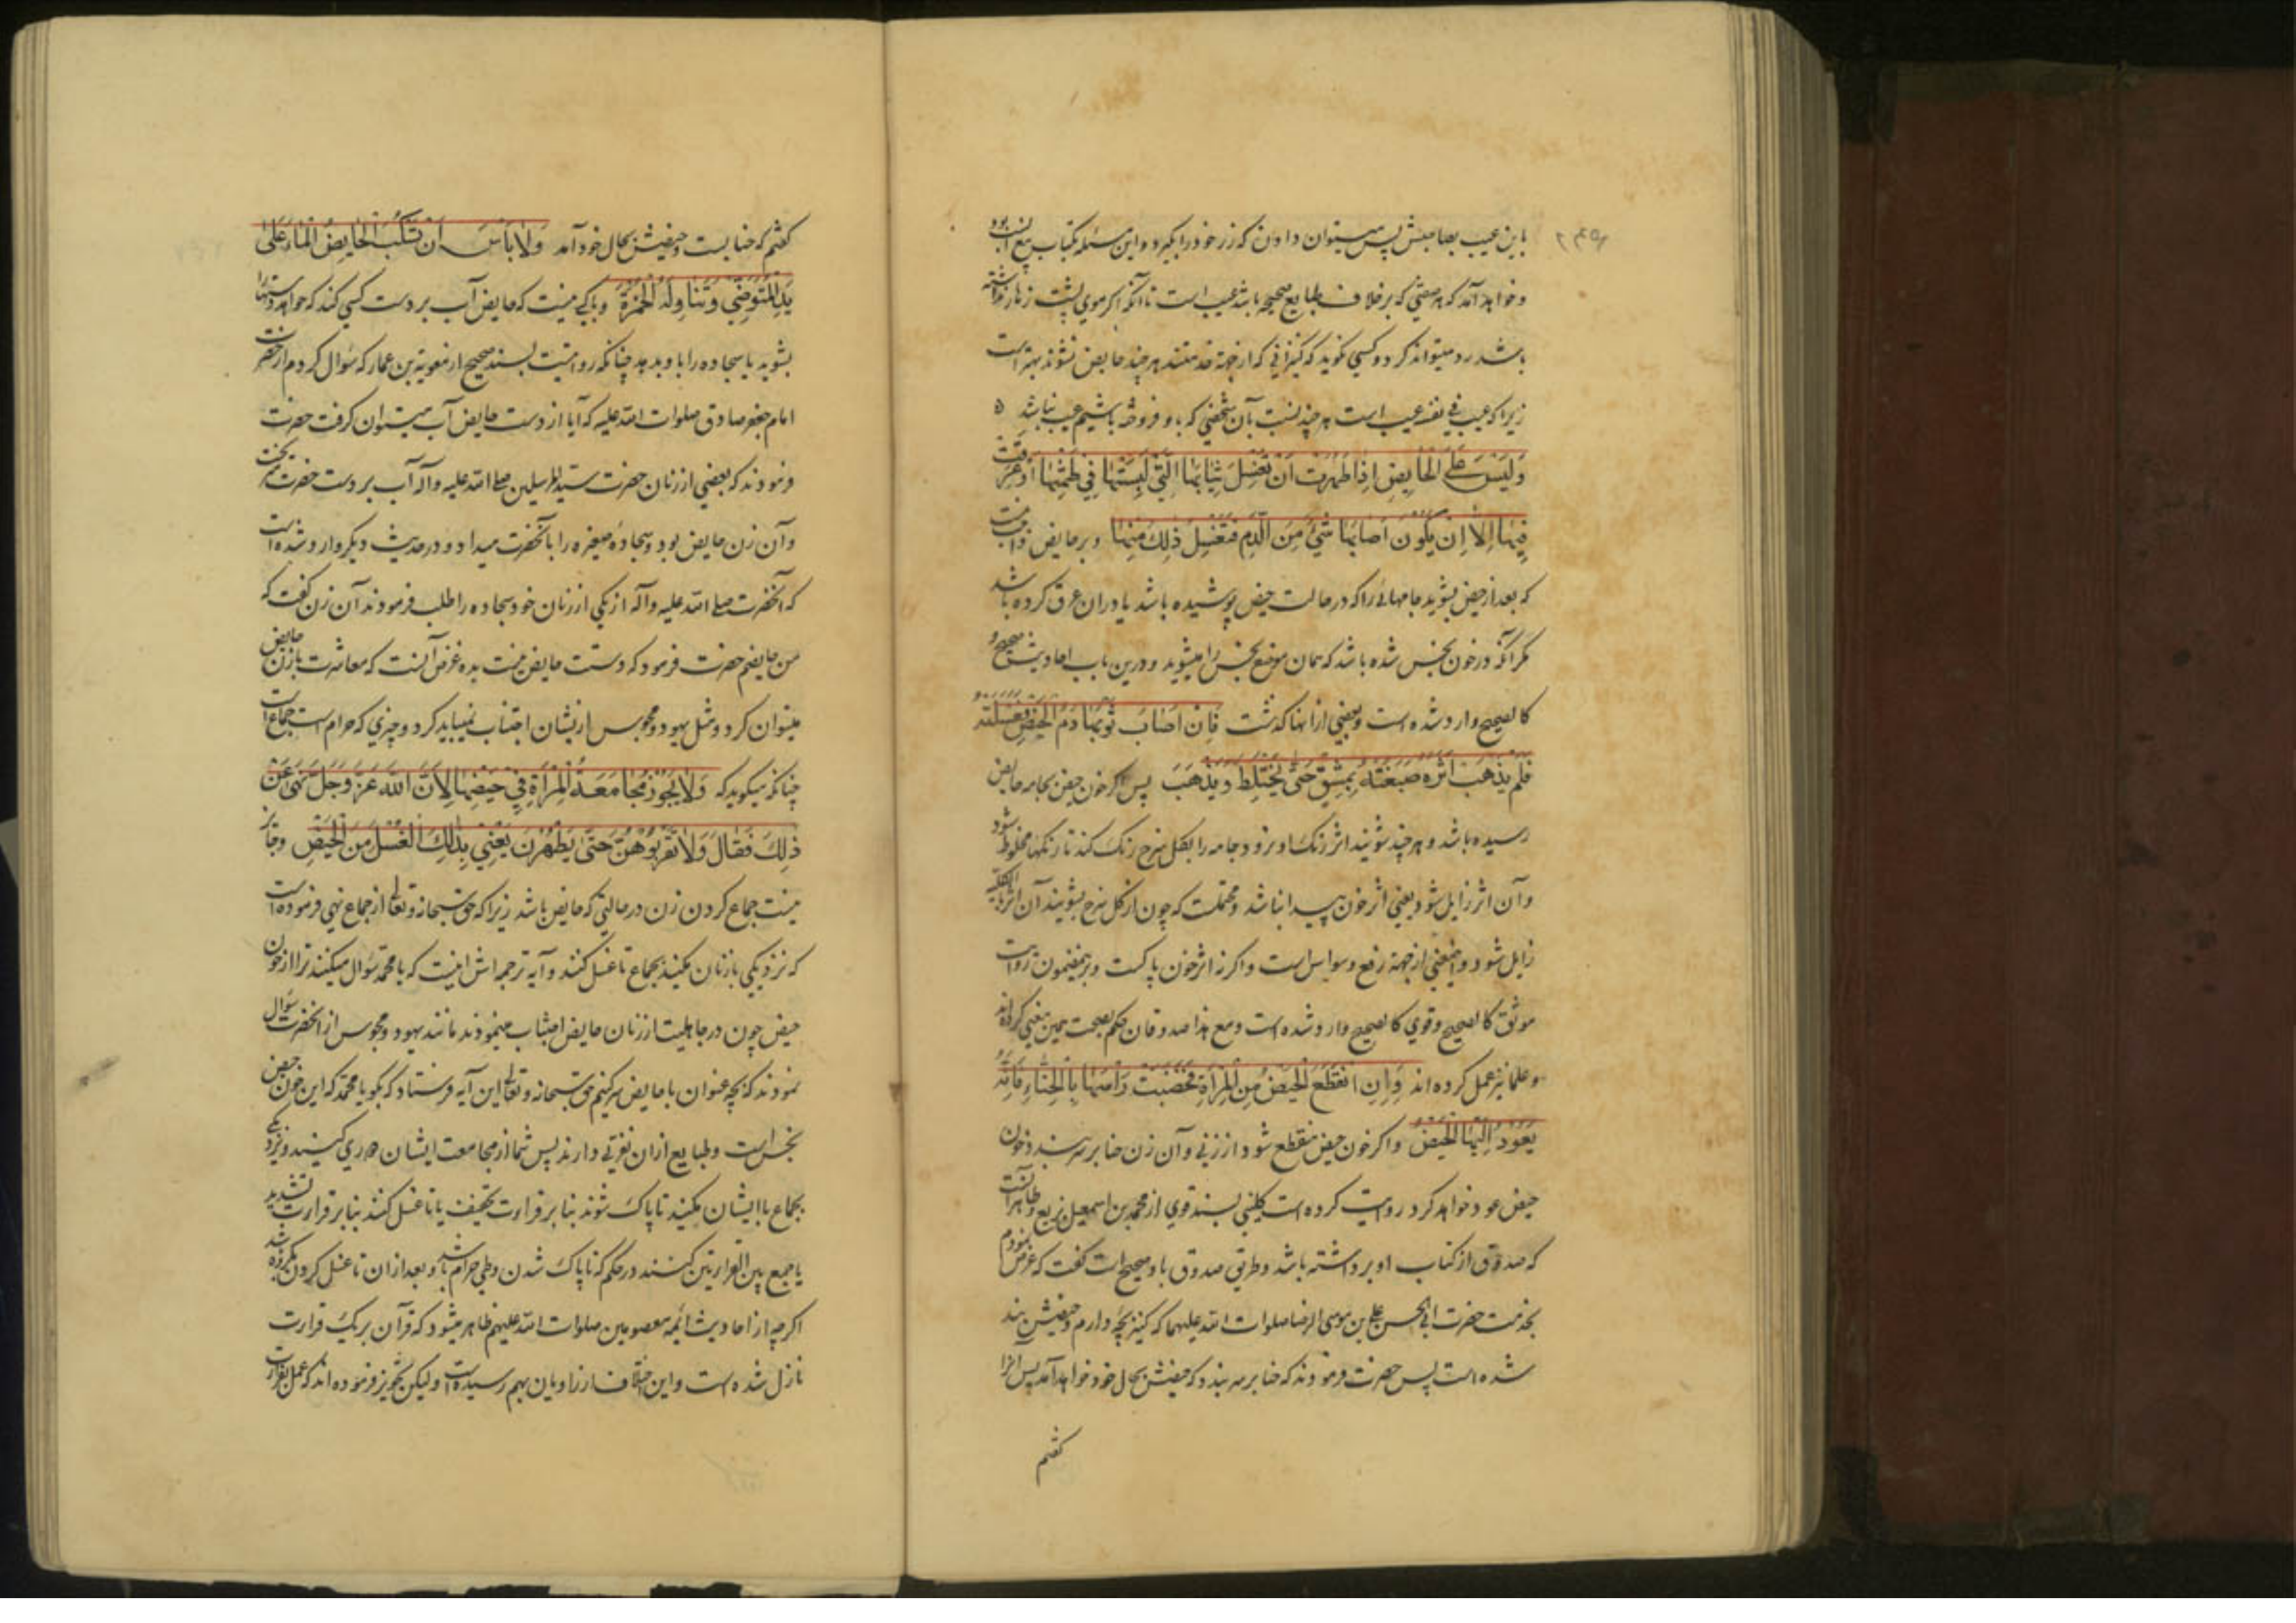 باین عیب بصاحبش پس میتوان دادن که زر خود را بگیرد و این مسئله بکتاب بیع انسب بود
و خواهد آمد که هر صفتی که بر خلاف طبایع صحیحه باشد عیب است تا آنکه اکر موی پشت زهار نداشته
باشد رد میتواند کرد و کسی نکوید که کنیزانی که ازین جهة هر چند حایض نشوند بهتر است
زیرا که عیب فی نفسه عیب است هر چند نسبت بآن شخصی که باو فروخته باشیم عیب نباشد
وَلَیْسَ عَلَی الْحایِضِ اِذا طَهُرَت اَنْ تَغْسِلَ ثِیابَهَا الَّتی لَبِسَتْها فِی طَمْثِها اَوْ عَرِقَتْ
فِیها اِلاّ اَن یَکُونَ اَصابَها شَیْءٌ مِنَ الدَّمِ فَتَغْسِلُ ذلِکَ مِنْها و بر حایض واجب نیست
که بعد از حیض بشوید جامهائی را که در حالت حیض پوشیده باشد یا در ان عرق کرده باشد
مکر آنکه در خون نجس شده باشد که همان موضع نجس را میشوید و درین باب احادیث صحیح و
کالصحیح وارد شده است و بعضی از انها کذشت فَاِنْ اَصابَ ثَوْبَها دَمُ الْحَیْضِ فَغَسَلَتْهُ
فَلَمْ یَذْهَبْ اَثَرُهُ صَبَغَتْهُ بِمِشْقٍ حَتّی یَخْتَلِطَ وَیَذْهَبَ پس اکر خون حیض بجامه حایض
رسیده باشد و هر چند شویند اثر رنک او نرود جامه را بکل سرخ رنک کند تا رنکها مخلوط شود
و آن اثر زایل شود یعنی اثر خون پیدا نباشد و محتملست که چون از کل سرخ بشویند آن اثر بالکلیه
زایل شود و این معنی از جهة رفع وسواس است و اکر نه اثر خون پاکست و بر همین مضمون روایت
موثق کالصحیح و قوی کالصحیح وارد شده است و مع هذا صدوقان حکم بصحت همین معنی کرده‌اند
و علما نیز عمل کرده اند وَاِنِ انْقَطَعَ الْحَیْضُ مِنَ الْمَرْأَةِ فَخَضَبَتْ رَأْسَها بِالْحِنّاءِ فَاِنَّهُ
یَعُودُ اِلَیْهَا الْحَیْضُ و اکر خون حیض منقطع شود از زنی و آن زن حنا بر سر بندد خون
حیض عود خواهد کرد روایت کرده است کلینی بسند قوی از محمد بن اسمعیل بن بزیع و ظاهرا آنست
که صدوق از کتاب او برداشته باشد و طریق صدوق باو صحیح است کفت که عرض نمودم
بخدمت حضرت ابی الحسن علی بن موسی الرضا صلوات الله علیهما که کنیز بچه دارم و حیضش بند
شده است پس حضرت فرمودند که حنا بر سر بندد که حیضش بحال خود خواهد آمد پس آنرا
کفتم
کفتم که حنا بست و حیضش بحال خود آمد وَلا بَأسَ اَنْ تَسْکُبَ الْحایِضُ الْماءَ عَلی
یَدِ الْمُتَوَضّی وَتُناوِلَهُ الْخُمْرَةَ و باکی نیست که حایض آب بر دست کسی کند که خواهد دستها
بشوید یا سجاده را باو بدهد چنانکه روایتست بسند صحیح از معویة بن عمار که سؤال کردم از حضرت
امام جعفر صادق صلوات الله علیه که آیا از دست حایض آب میتوان کرفت حضرت
فرمودند که بعضی از زنان حضرت سید المرسلین صلی الله علیه وآله آب بر دست حضرت میریخت
و آن زن حایض بود و سجادهٔ صغیره را بآنحضرت میداد و در حدیث دیکر وارد شده است
که آنحضرت صلی الله علیه وآله از یکی از زنان خود سجاده را طلب فرمودند آن زن کفت که
من حایضم حضرت فرمود که دستت حایض نیست بده غرض آنست که معاشرت با زن حایض
میتوان کرد و مثل یهود و مجوس از یشان اجتناب نمیباید کرد و چیزی که حرام است جماع است
چنانکه میکوید که وَلا یَجُوزُ مُجامَعَةُ الْمَرْأَةِ فِی حَیْضِها لِاَنَّ اللّهَ عَزَّ وَجَلَّ نَهی عَنْ
ذلِکَ فَقالَ وَلا تَقْرَبُوهُنَّ حَتّی یَطْهُرْنَ یَعْنِی بِذلِکَ الْغُسْلَ مِنَ الْحَیْضِ و جایز
نیست جماع کردن زن در حالتی که حایض باشد زیرا که حق سبحانه وتعالی از جماع نهی فرموده است
که نزدیکی با زنان مکنید بجماع تا غسل کنند و آیه ترجمه اش اینست که یا محمد سؤال میکنند ترا از خون
حیض چون در جاهلیت از زنان حایض اجتناب مینمودند مانند یهود و مجوس از آنحضرت سؤال
نمودند که بچه عنوان با حایض سر کنیم حق سبحانه وتعالی این آیه فرستاد که بکو یا محمد که این خون حیض
نجس است و طبایع از ان نفرتی دارند پس شما از مجامعت ایشان دوری کنید و نزدیکی
بجماع با ایشان مکنید تا پاک شوند بنا بر قراءت تخفیف یا تا غسل کنند بنا بر قراءت تشدید
یا جمع بین القراءتین کنند در حکم که تا پاک شدن وطی حرام باشد و بعد از ان تا غسل کردن مکروه باشد
اکر چه از احادیث ائمه معصومین صلوات الله علیهم ظاهر میشود که قرآن بر یک قراءت
نازل شده است و این اختلاف از راویان بهم رسیده است ولیکن تجویز فرموده اند که عمل بقراءت